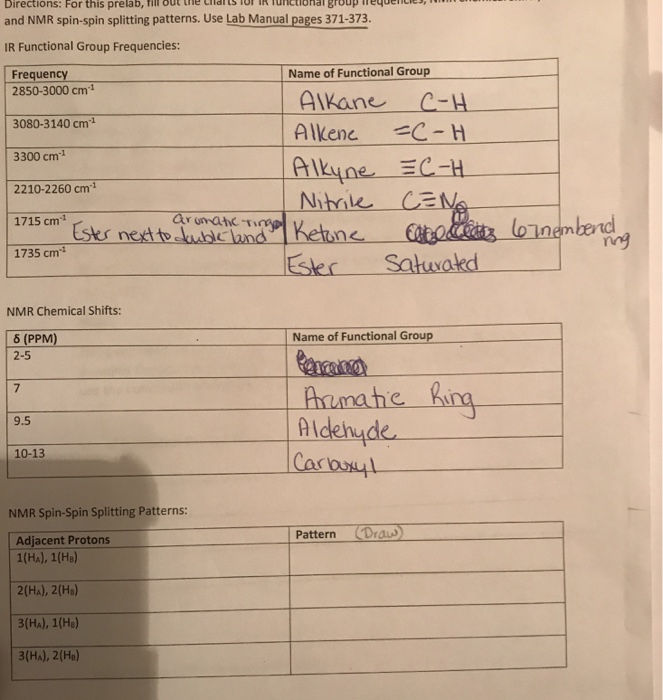 Directions: For this prelab, fill out the charts for IR functional group frequencies,
and NMR spin-spin splitting patterns. Use Lab Manual pages 371-373.
IR Functional Group Frequencies:
Frequency Name of Functional Group
2850-3000 cm-1 Alkane C-H
3080-3140 cm-1 Alkene =C-H
3300 cm-1 Alkyne ≡C-H
2210-2260 cm-1 Nitrile C≡N
1715 cm-1 Ester next to double bond aromatic ring Ketone 6-membered ring
1735 cm-1 Ester Saturated
NMR Chemical Shifts:
δ (PPM) Name of Functional Group
2-5
7 Arumatic Ring
9.5 Aldehyde
10-13 Carboxyl
NMR Spin-Spin Splitting Patterns:
Adjacent Protons Pattern (Draw)
1(HA), 1(HB)
2(HA), 2(HB)
3(HA), 1(HB)
3(HA), 2(HB)